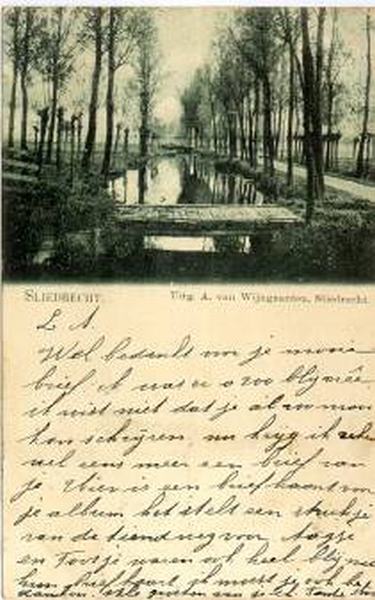 SLIEDRECHT.
Uitg. A. van Wijngaarden, Sliedrecht.
L A
Wel bedankt voor je mooie
brief. A was er o zoo blij mêe
ik wist niet dat je al zo mooi
kon schrijven, nu krijg ik zeker
wel eens meer een brief van
je. Hier is een briefkaart voor
je album het stelt een stukje
van de tiendweg voor
en Tootje waren ook heel blij met
hun briefkaart je moest je ook